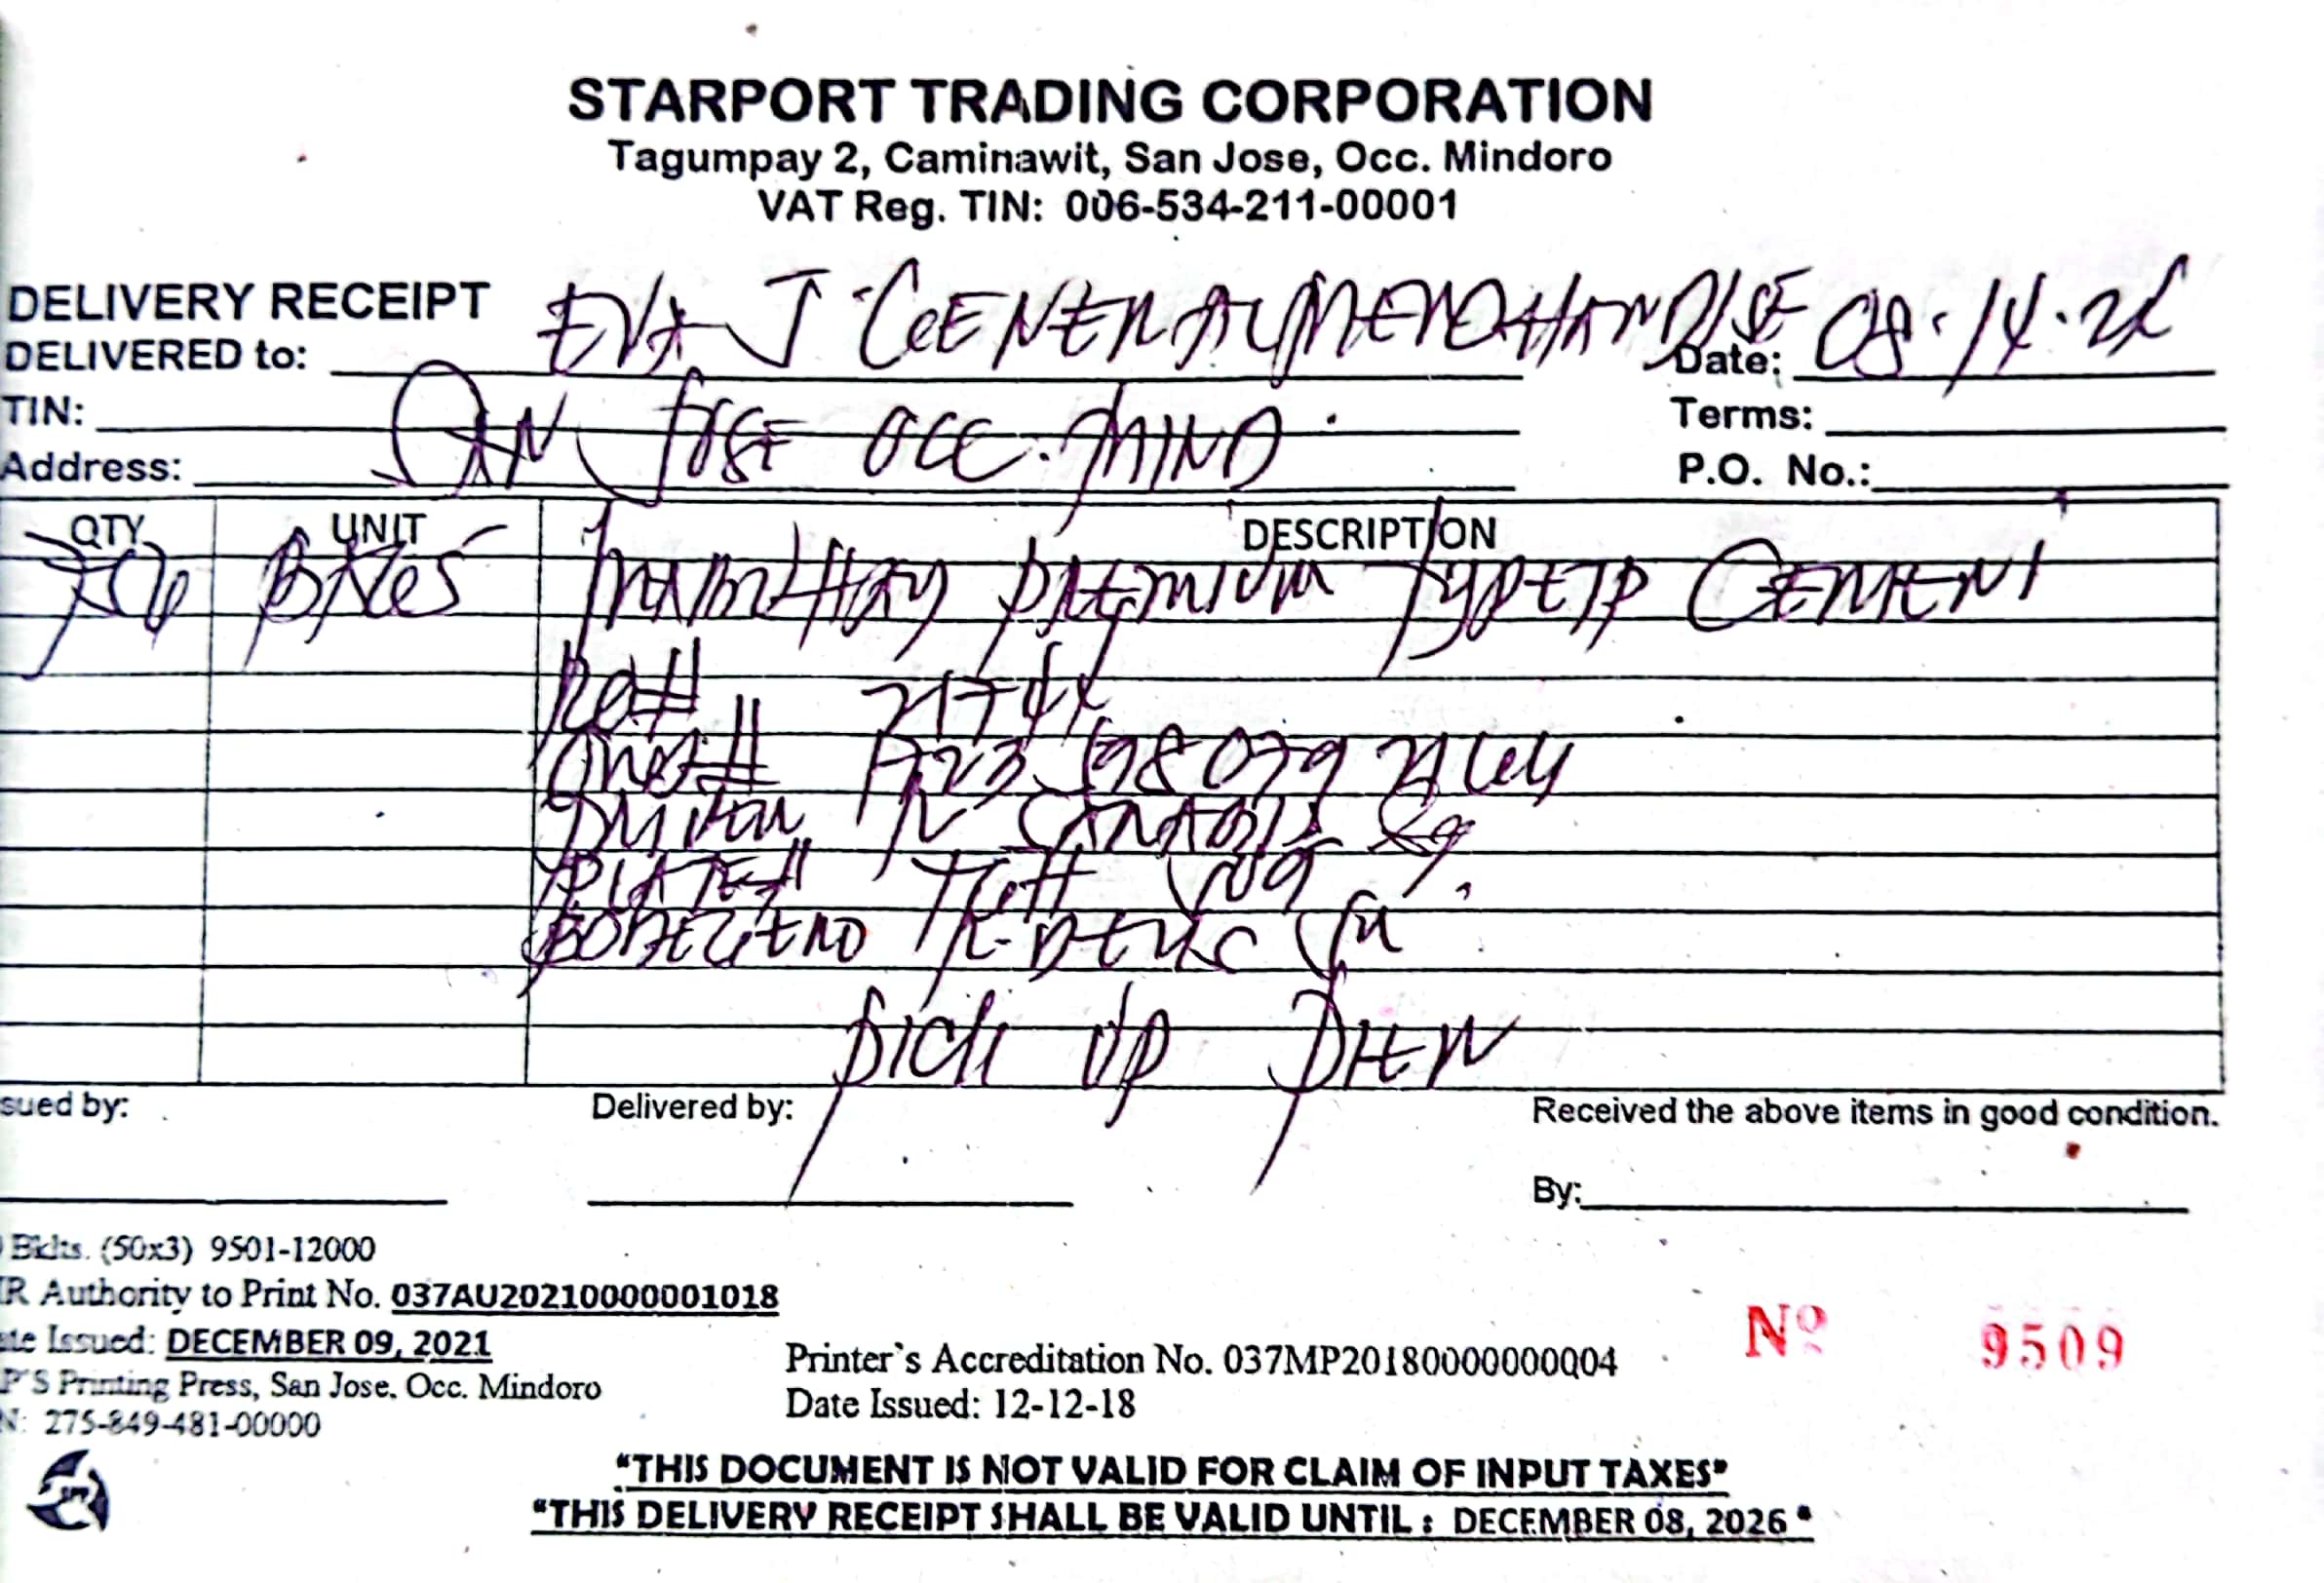 STARPORT TRADING CORPORATION
Tagumpay 2, Caminawit, San Jose, Occ. Mindoro
VAT Reg. TIN: 006-534-211-00001
DELIVERY RECEIPT
DELIVERED to: EVA J GENERAL MERCHANDISE Date: 08-14-22
TIN: Terms:
Address: SAN JOSE OCC. MIND. P.O. No.:
QTY UNIT DESCRIPTION
BAGS PREMIUM TYPE1P CEMENT
DRIVER
PLATE#
BODEGERO
PICK UP
sued by: Delivered by: Received the above items in good condition.
By:
Bklts. (50x3) 9501-12000
IR Authority to Print No. 037AU20210000001018
ate Issued: DECEMBER 09, 2021
P'S Printing Press, San Jose. Occ. Mindoro
N: 275-849-481-00000
Printer's Accreditation No. 037MP20180000000004
Date Issued: 12-12-18
Nº 9509
"THIS DOCUMENT IS NOT VALID FOR CLAIM OF INPUT TAXES"
"THIS DELIVERY RECEIPT SHALL BE VALID UNTIL : DECEMBER 08, 2026"